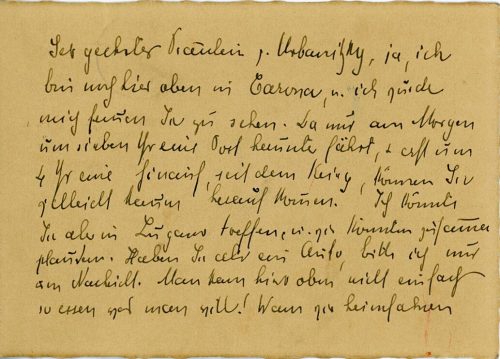 Sehr geehrtes Fräulein v. Urbanitzky, ja, ich
bin noch hier oben in Carona, u. ich würde
mich freuen Sie zu sehen. Da nur am Morgen
um sieben Uhr eine Post herunter fährt, u. erst um
4 Uhr eine hinauf, seit dem Krieg, können Sie
vielleicht kaum herauf kommen. Ich könnte
Sie aber in Lugano treffen, u. wir könnten zusammen
plaudern. Haben Sie aber ein Auto, bitte ich nur
um Nachricht. Man kann hier oben nicht einfach
so essen was man will! Wann wir heimfahren